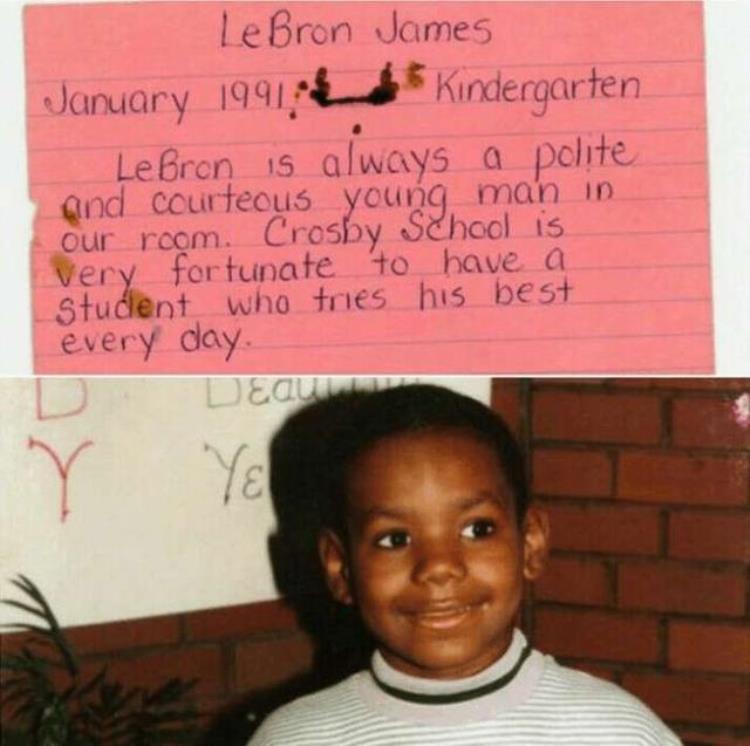 LeBron James
January 1991 Kindergarten
LeBron is always a polite
and courteous young man in
our room. Crosby School is
very fortunate to have a
student who tries his best
every day.
B
Y Ye